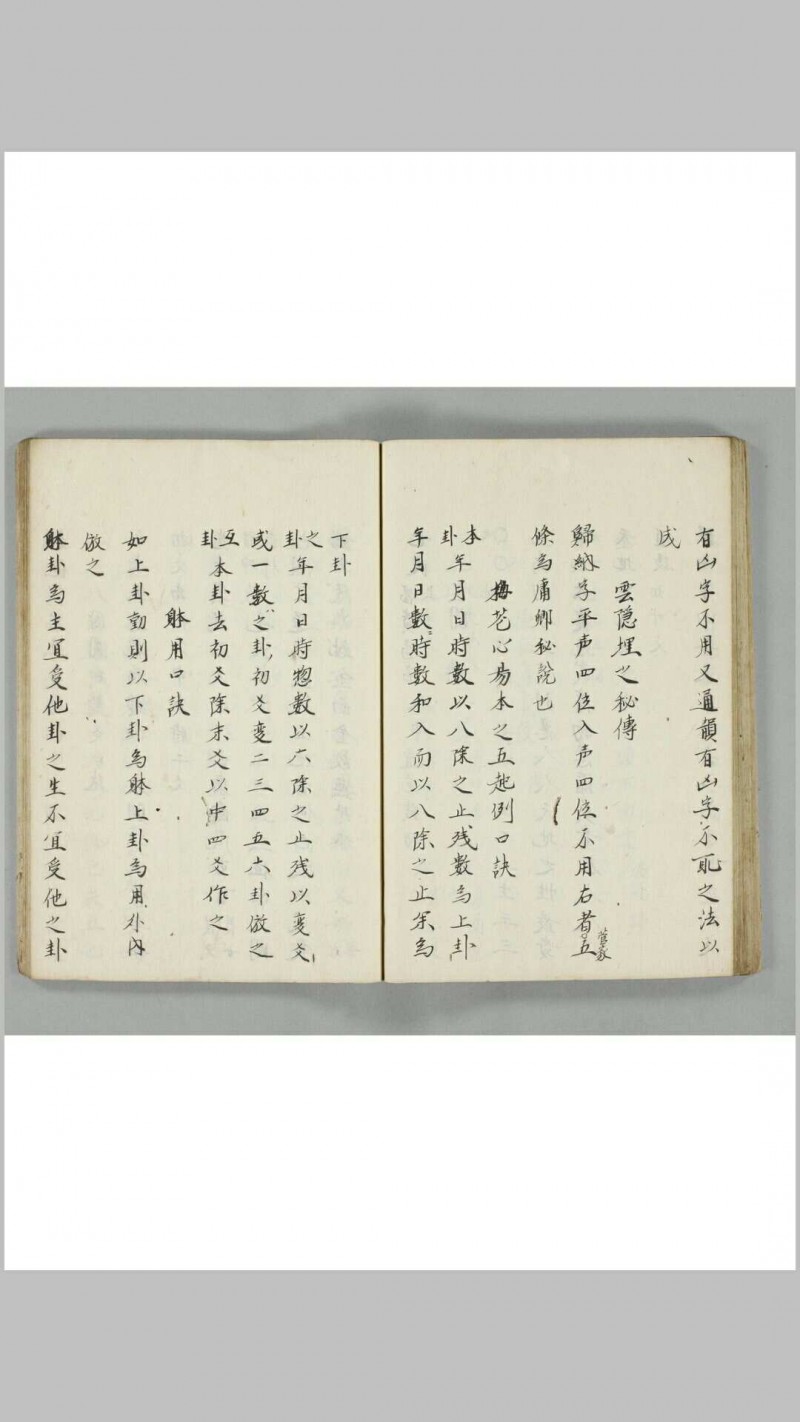 有凶字不用又通韻有凶字不取之法以
成
雲隐埋之秘傳
歸納字平声四位入声四位不用右者五
菅家
條為庸卿秘說也
梅花心易本之五起例口訣
本卦年月日時數以八除之止残數為上卦
年月日數時數和入而以八除之止余為
下卦
之卦年月日時惣數以六除之止残以変爻
或一數之卦初爻変二三四五六卦倣之
互卦本卦去初爻除末爻以中四爻作之
躰用口訣
如上卦動則以下卦為躰上卦為用外内
倣之
躰卦為主宜受他卦之生不宜受他之卦